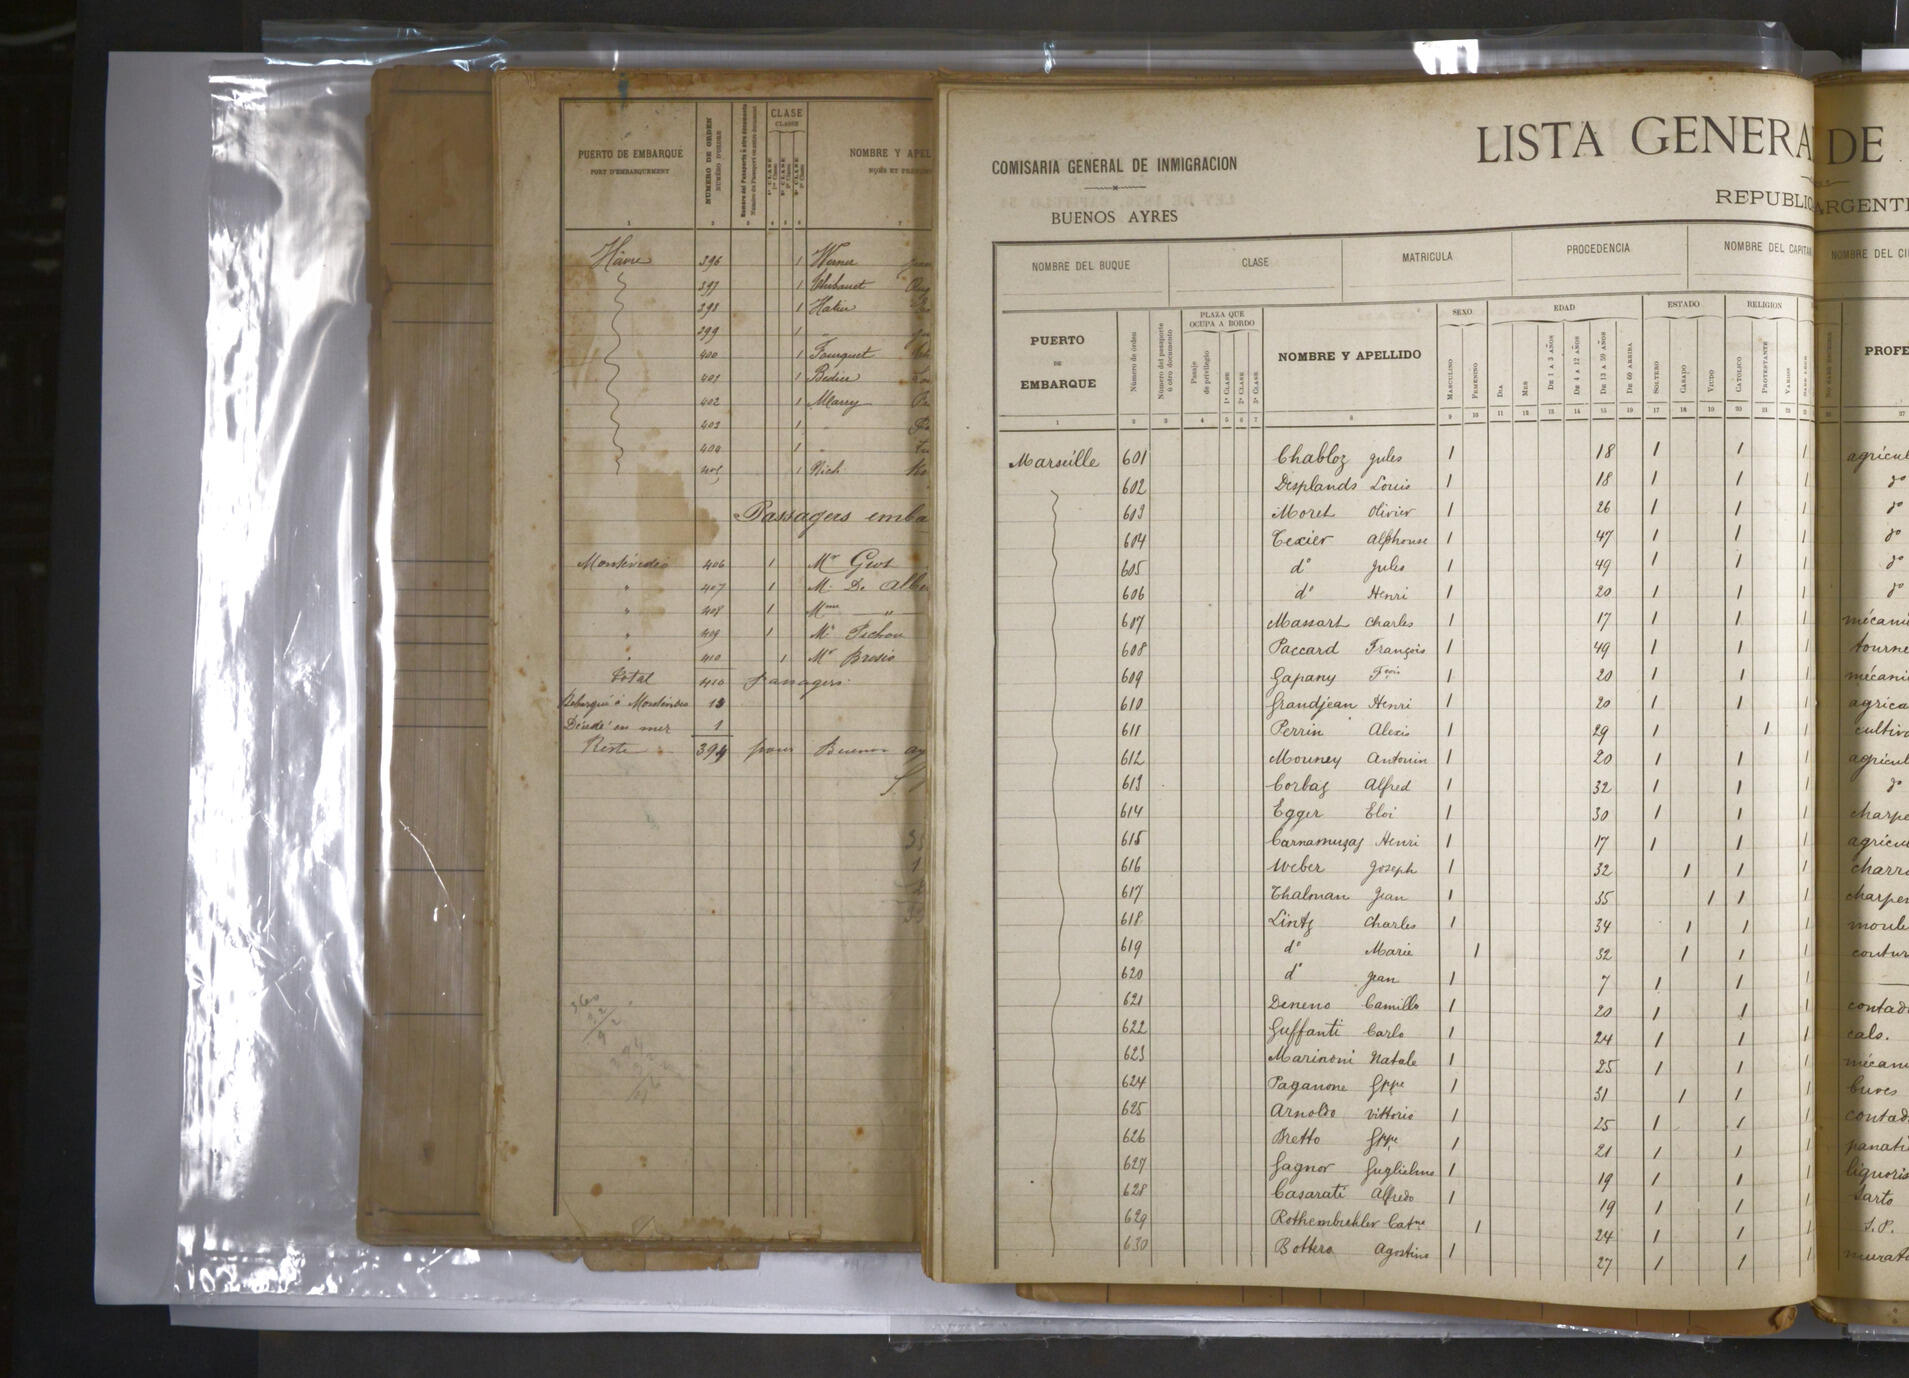 PUERTO DE EMBARQUE
PORT D'EMBARQUEMENT
NUMERO DE ORDEN
NUMÉRO D'ORDRE
CLASE
CLASSE
1ª CLASE
2ª CLASE
3ª CLASE
NOMBRE Y APEL
1 2 3 4 5 6 7
Hâvre 396 1 Werner
397 1
398 1 Hatier
399 1 "
400 1 Fourquet
401 1 Bedier
402 1 Marry
403 1 "
404 1 "
405 1 Rich
Passagers emba
Montévidéo 406 1 Mr Gros
" 407 1 M. De Albe
" 408 1 Mme "
" 409 1 Mr Pichon
" 410 1 Mr Brosio
Total 410 passagers
Debarqué à Montévideo 15
Décédé en mer 1
Reste 394 pour Buenos ay
COMISARIA GENERAL DE INMIGRACION
BUENOS AYRES
LISTA GENERA DE
REPUBLIC ARGENTI
NOMBRE DEL BUQUE
CLASE
MATRICULA
PROCEDENCIA
NOMBRE DEL CAPITAN
NOMBRE DEL CI
PUERTO DE EMBARQUE
Número de órden
Número del pasaporte ú otro documento
PLAZA QUE OCUPA A BORDO
Pasaje de privilegio
1ª CLASE
2ª CLASE
3ª CLASE
NOMBRE Y APELLIDO
SEXO
MASCULINO
FEMENINO
EDAD
DIA
MES
DE 1 A 3 AÑOS
DE 4 A 12 AÑOS
DE 13 A 59 AÑOS
DE 60 ARRIBA
ESTADO
SOLTERO
CASADO
VIUDO
RELIGION
CATOLICO
PROTESTANTE
VARIOS
PROFE
1 2 3 4 5 6 7 8 9 10 11 12 13 14 15 16 17 18 19 20 21 22
Marseille 601 Chabloz Jules 1 18 1 1 1 agricul
602 Desplands Louis 1 18 1 1 1 do
603 Moret Olivier 1 26 1 1 1 do
604 Texier Alphonse 1 47 1 1 1 do
605 do Jules 1 49 1 1 1 do
606 do Henri 1 20 1 1 1 do
607 Massart Charles 1 17 1 1 1 mécani
608 Paccard François 1 49 1 1 1 tourne
609 Gapany Fçois 1 20 1 1 1 mécani
610 Grandjean Henri 1 20 1 1 1 agricu
611 Perrin Alexis 1 29 1 1 1 cultiva
612 Mouney Antonin 1 20 1 1 1 agricul
613 Corbaz Alfred 1 32 1 1 1 do
614 Egger Eloi 1 30 1 1 1 charpe
615 Carnamuzaz Henri 1 17 1 1 1 agricu
616 Weber Joseph 1 32 1 1 1 charro
617 Thalman Jean 1 35 1 1 1 charpen
618 Lintz Charles 1 34 1 1 1 moule
619 do Marie 1 32 1 1 1 coutur
620 do Jean 1 7 1 1 1
621 Deneno Camillo 1 20 1 1 1 contad
622 Guffanti Carlo 1 24 1 1 1 calo.
623 Marinoni Natale 1 25 1 1 1 mécani
624 Paganone Gppe 1 31 1 1 1
625 Arnoldo Vittorio 1 25 1 1 1 contad
626 Bretto Gppe 1 21 1 1 1 panati
627 Gagnor Guglielmo 1 19 1 1 1 liquoris
628 Casarati Alfredo 1 19 1 1 1 sarto
629 Rothembuhler Catne 1 24 1 1 1 S.P.
630 Bottero Agostino 1 27 1 1 1 murato